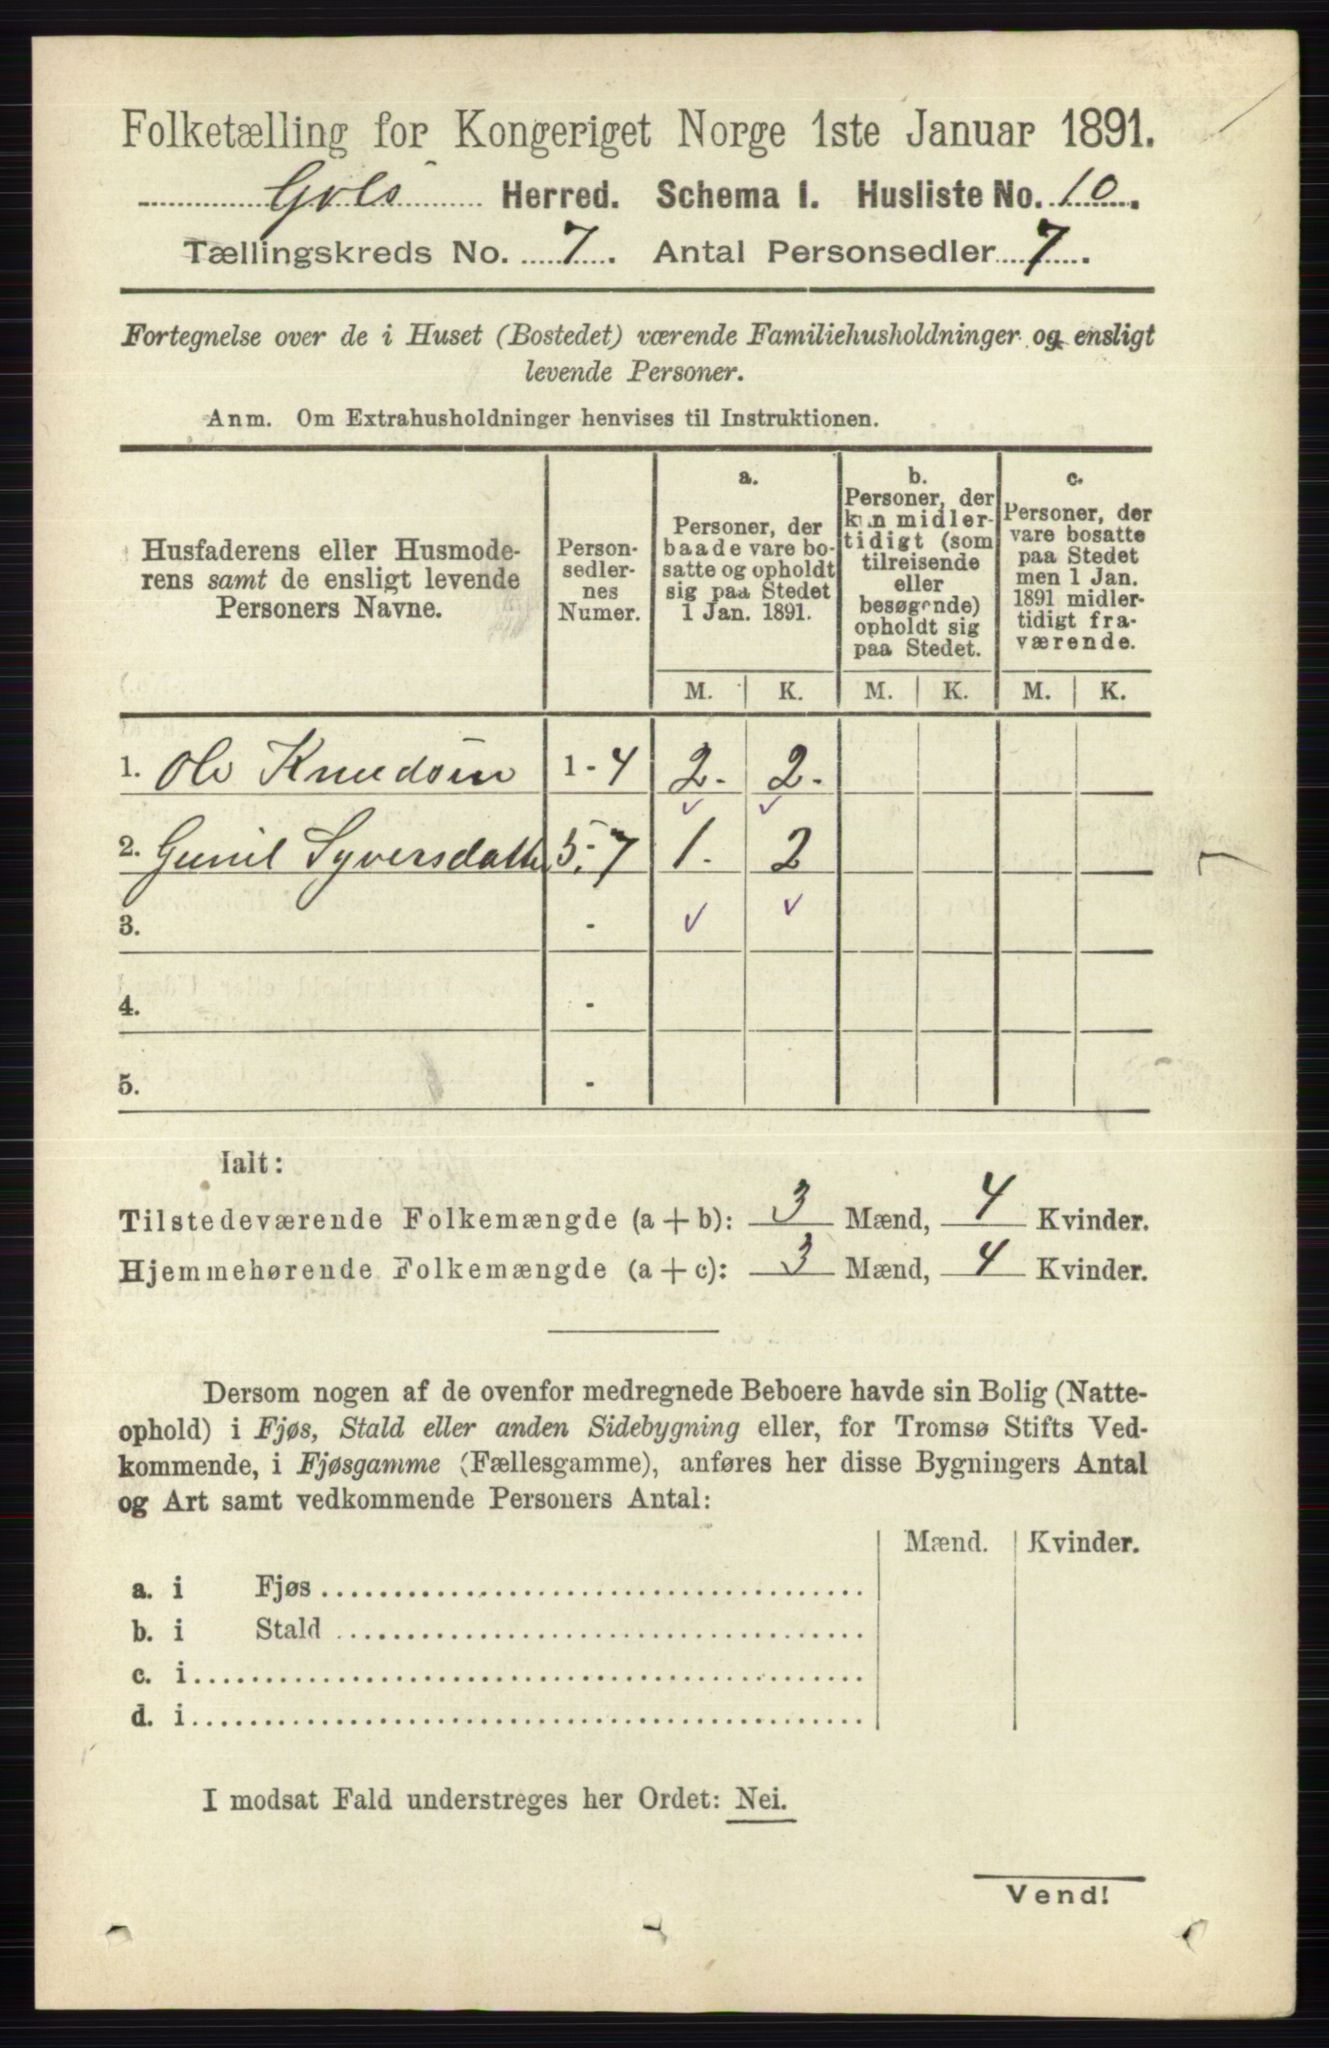 Folketælling for Kongeriget Norge 1ste Januar 1891.
Gols Herred. Schema I. Husliste No. 10.
Tællingskreds No. 7. Antal Personsedler 7.
Fortegnelse over de i Huset (Bostedet) værende Familiehusholdninger og ensligt
levende Personer.
Anm. Om Extrahusholdninger henvises til Instruktionen.
Husfaderens eller Husmode-
rens samt de ensligt levende
Personers Navne.
Person-
sedler-
nes
Numer.
a.
Personer, der
baade vare bo-
satte og opholdt
sig paa Stedet
1 Jan. 1891.
b.
Personer, der
kun midler-
tidigt (som
tilreisende
eller
besøgende)
opholdt sig
paa Stedet.
c.
Personer, der
vare bosatte
paa Stedet
men 1 Jan.
1891 midler-
tidigt fra-
værende.
M. K. M. K. M. K.
1. Ole Knudsen 1-4 2. 2.
2. Gunil Syversdatter 5-7 1. 2
3. -
4. -
5. -
Ialt:
Tilstedeværende Folkemængde (a+b): 3 Mænd, 4 Kvinder.
Hjemmehørende Folkemængde (a+c): 3 Mænd, 4 Kvinder.
Dersom nogen af de ovenfor medregnede Beboere havde sin Bolig (Natte-
ophold) i Fjøs, Stald eller anden Sidebygning eller, for Tromsø Stifts Ved-
kommende, i Fjøsgamme (Fællesgamme), anføres her disse Bygningers Antal
og Art samt vedkommende Personers Antal:
Mænd. Kvinder.
a. i Fjøs
b. i Stald
c. i
d. i
I modsat Fald understreges her Ordet: Nei.
Vend!